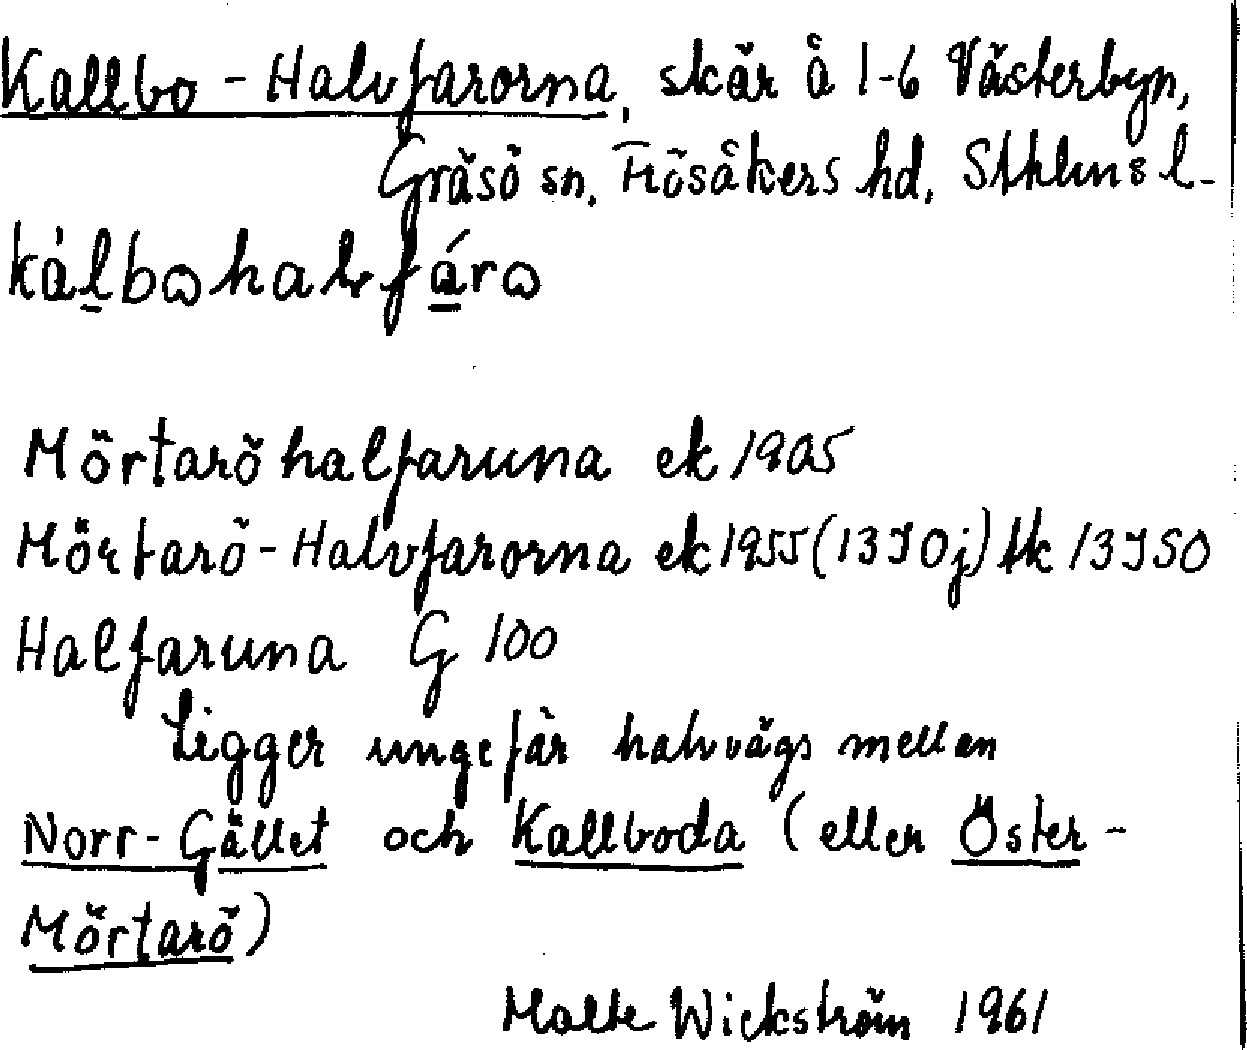 Kallbo-Halvfarorna, skär å 1-6 Västerbyn,
Gräsö sn, Frösåkers hd, Sthlms l.
Mörtaröhalfaruna ek 1905
Mörtarö-Halvfarorna ek 1955 (13I0j) tk 13ISO
Halfaruna G 100
Ligger ungefär halvvägs mellan
Norr-Gället och Kallboda (eller Öster-
Mörtarö)
Malte Wickström 1961